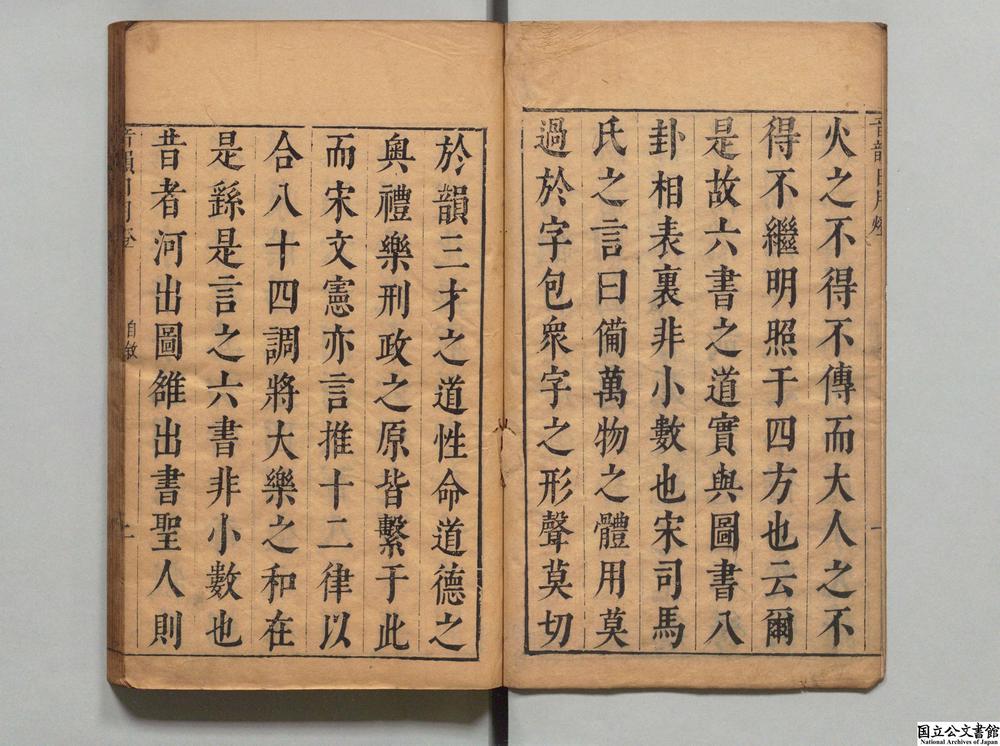 火之不得不傳而大人之不
得不繼明照于四方也云爾
是故六書之道實與圖書八
卦相表裏非小數也宋司馬
氏之言曰備萬物之體用莫
過於字包衆字之形聲莫切
於韻三才之道性命道德之
奧禮樂刑政之原皆繫于此
而宋文憲亦言推十二律以
合八十四調將大樂之和在
是繇是言之六書非小數也
昔者河出圖雒出書聖人則
音韻日月燈
自敘
国立公文書館
National Archives of Japan